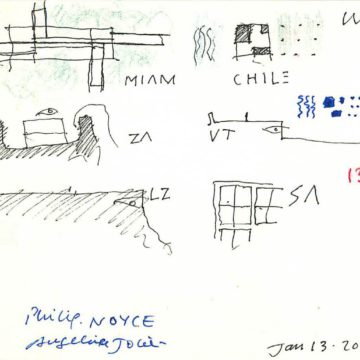 MIAM
CHILE
ZA
VT
LZ
SA
13
Philip. NOYCE
Angelina Jolie
Jan 13. 20